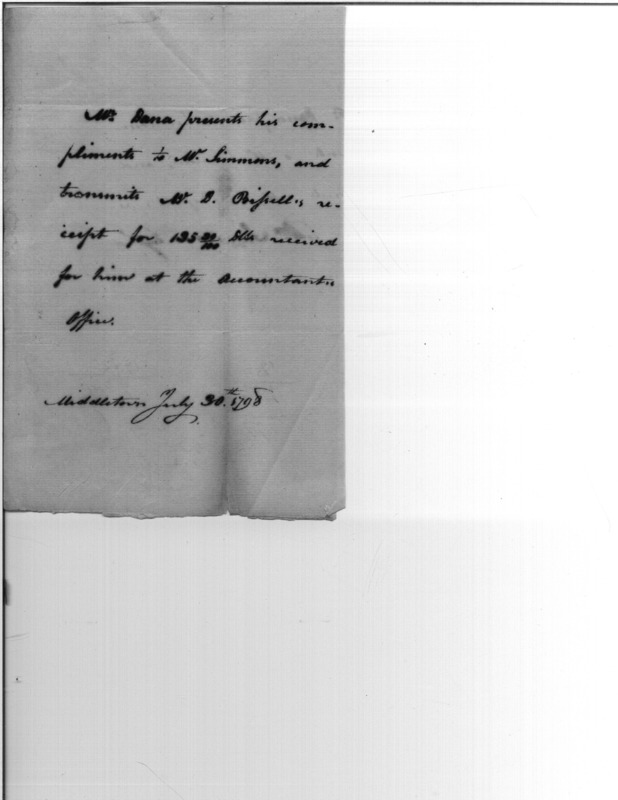 Mr. Dana presents his com-
pliments to Mr. Simmons, and
transmits Mr. D. Bissell's re-
ceipt for 135 Dlls received
for him at the Accountant's
Office.
Middletown July 30.th 1798